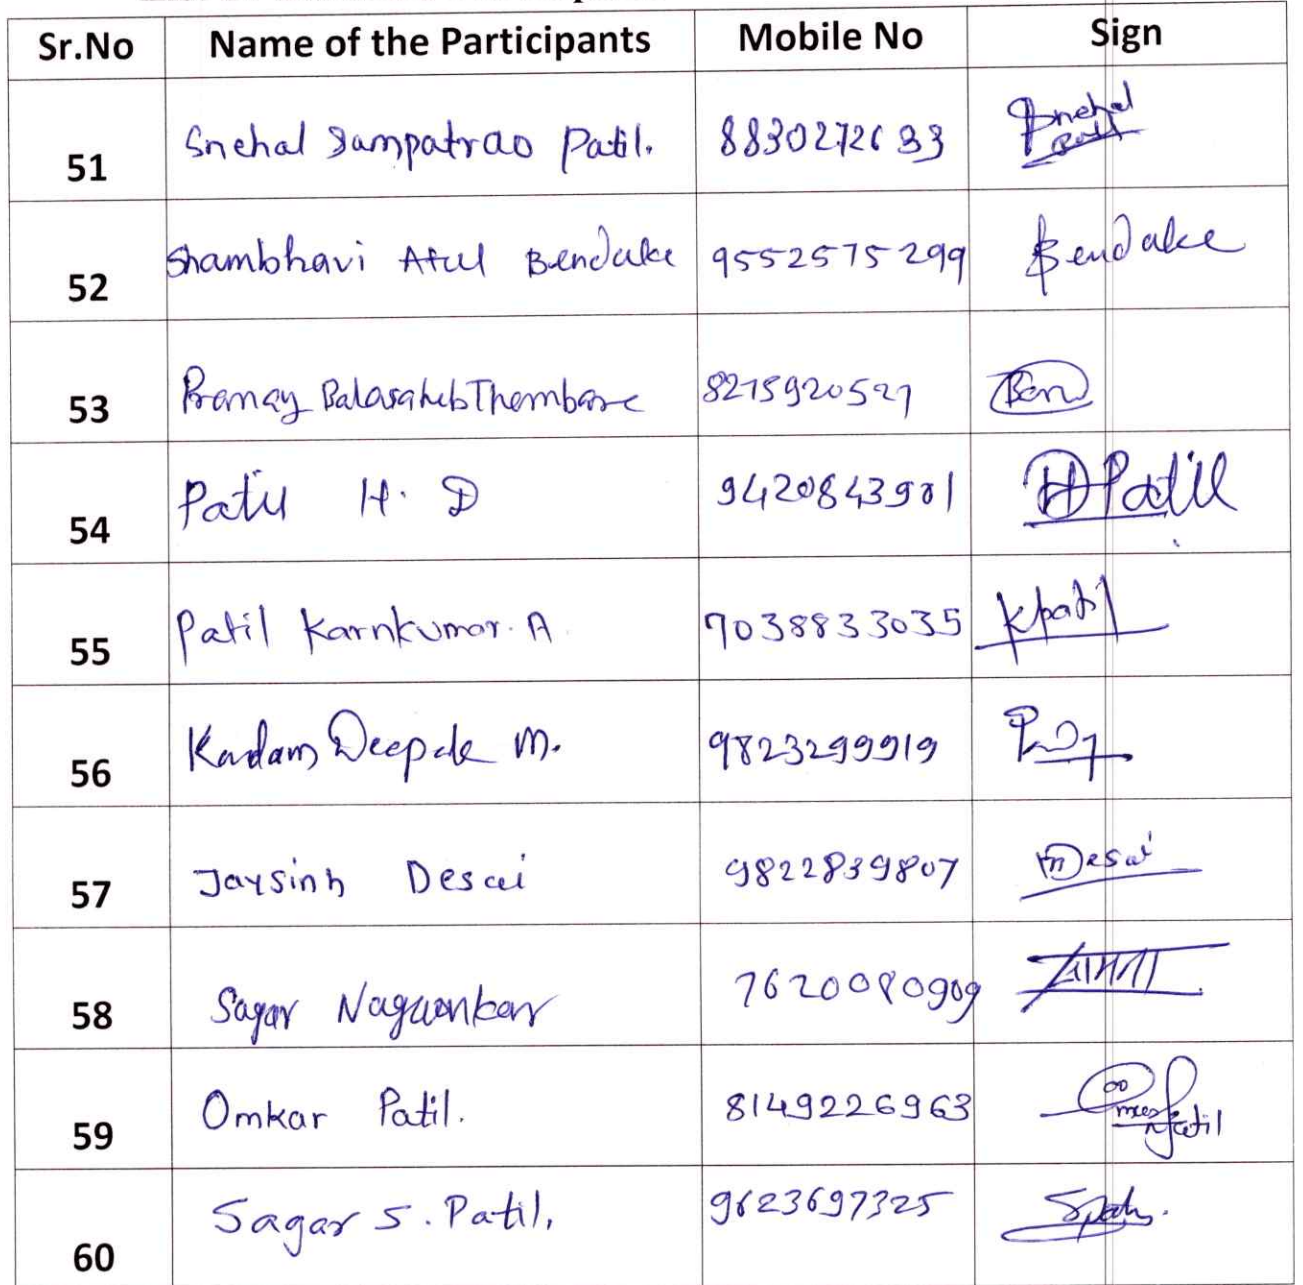 Sr.No Name of the Participants Mobile No Sign
51 Snehal Sampatrao Patil. 8830272633 Snehal
52 Shambhavi Atul Bendake 9552575299 Bendake
53 Pranay Balasaheb Thombare 8275920527
54 Patil H. D 9420843901 HPatil
55 Patil Karnkumar. A 7038833035 Kpatil
56 Kadam Deepak M. 9823299919
57 Jaysinh Desai 9822839807 Desai
58 Sagar Nagaonkar 7620080909
59 Omkar Patil. 8149226963
60 Sagar S. Patil. 9623697325